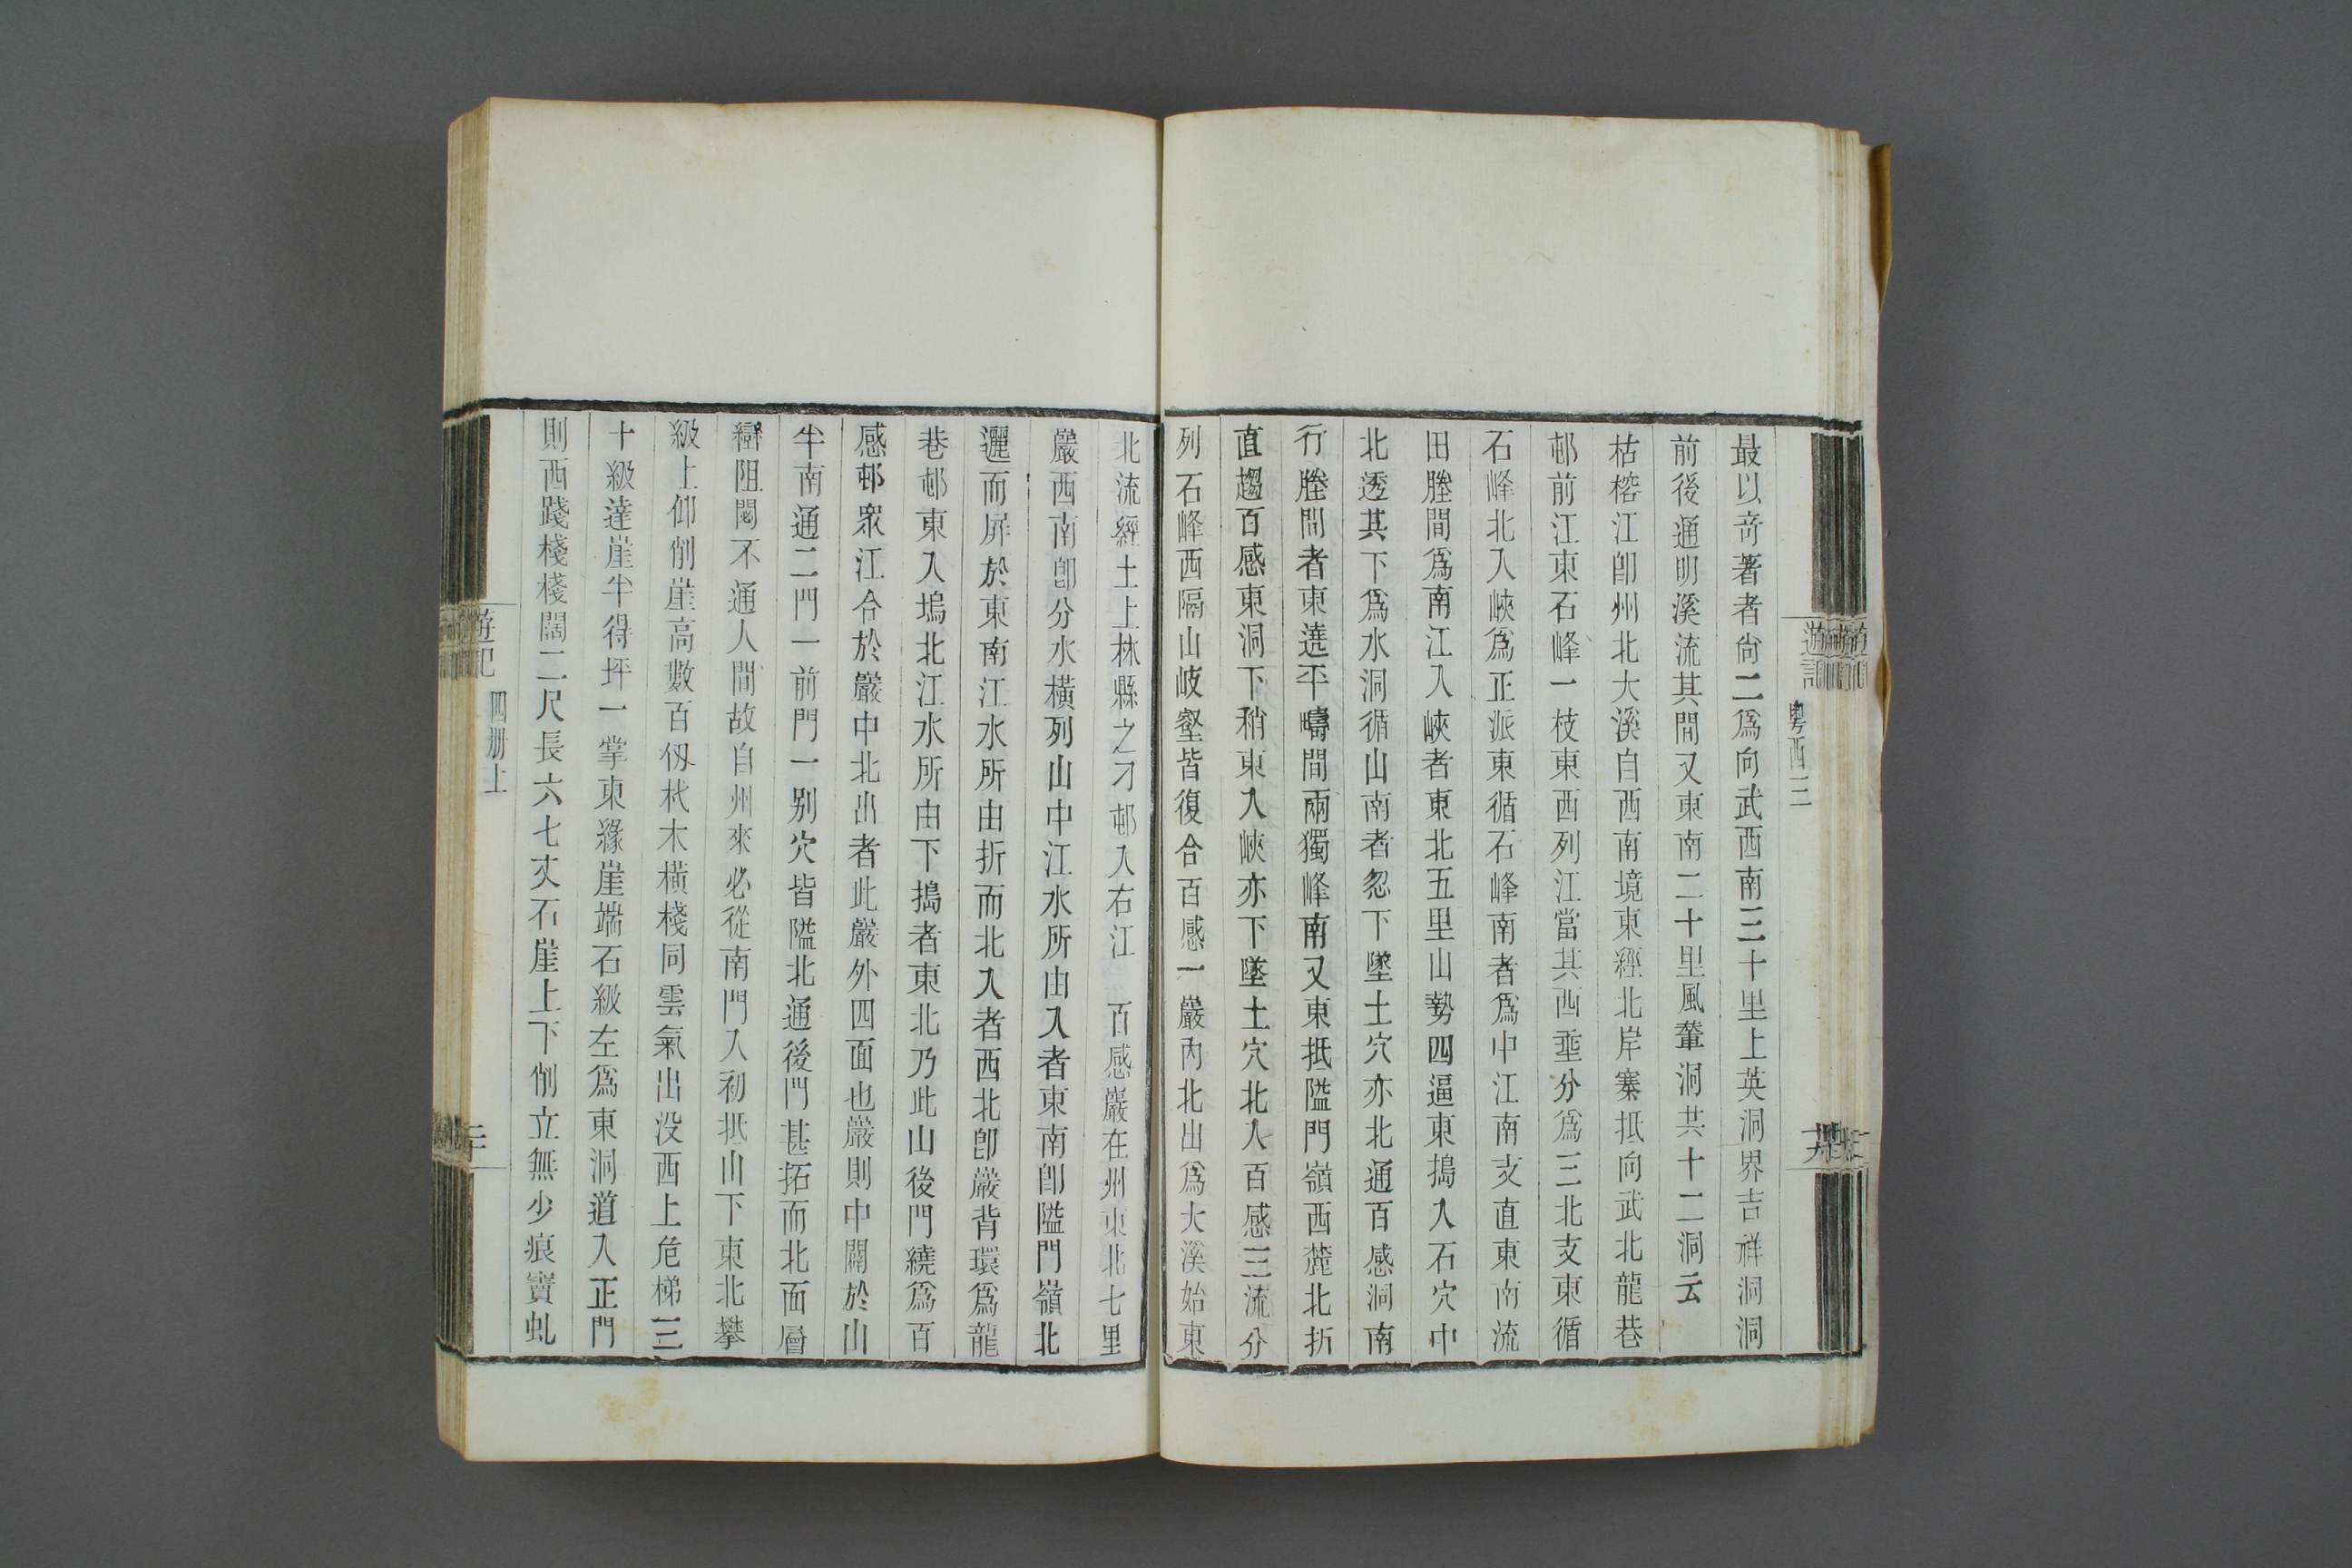 粵西三
最以竒著者尙二爲向武西南三十里上英洞界吉祥洞洞
前後通明溪流其間又東南二十里風輋洞共十二洞云
枯榕江卽州北大溪自西南境東經北岸寨抵向武北龍巷
邨前江東石峰一枝東西列江當其西垂分爲三北支東循
石峰北入峽爲正派東循石峰南者爲中江南支直東南流
田塍間爲南江入峽者東北五里山勢四逼東搗入石穴中
北透其下爲水洞循山南者忽下墜土穴亦北通百感洞南
行塍間者東遶平疇間兩獨峰南又東抵隘門嶺西麓北折
直趨百感東洞下稍東入峽亦下墜土穴北入百感三流分
列石峰西隔山岐壑皆復合百感一巖內北出爲大溪始東
北流經土上林縣之刁邨入右江　百感巖在州東北七里
巖西南卽分水橫列山中江水所由入者東南卽隘門嶺北
邐而屏於東南江水所由折而北入者西北卽巖背環爲龍
巷邨東入塢北江水所由下搗者東北乃此山後門繞爲百
感邨衆江合於巖中北出者此巖外四面也巖則中闢於山
半南通二門一前門一別穴皆隘北通後門甚拓而北面層
巒阻閡不通人間故自州來必從南門入初抵山下東北攀
級上仰削崖高數百仭杙木橫棧同雲氣出没西上危梯三
十級達崖半得坪一掌東緣崖端石級左爲東洞道入正門
則西踐棧棧闊二尺長六七丈石崖上下削立無少痕竇虬
遊記
四册上
二十